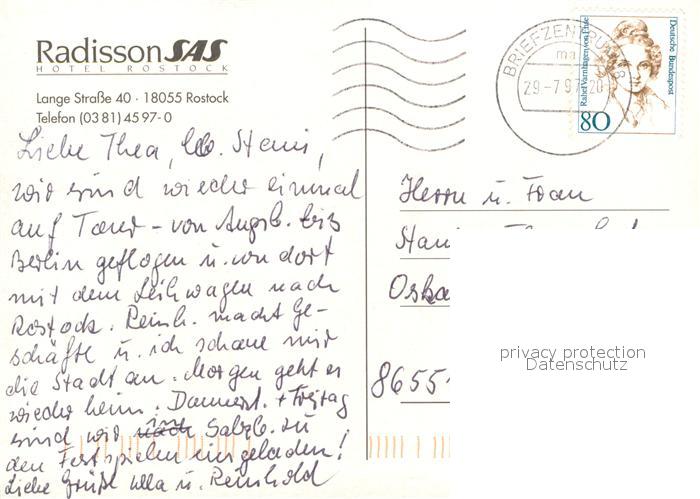 Radisson SAS
HOTEL ROSTOCK
Lange Straße 40 · 18055 Rostock
Telefon (03 81) 45 97- 0
Liebe Thea, lb. Hani,
wir sind wieder einmal
auf Tour - von Augsb. bis
Berlin geflogen u. von dort
mit dem Leihwagen nach
Rostock. Reinh. macht Ge-
schäfte u. ich schaue mir
die Stadt an. Morgen geht es
wieder heim. Donnerst. + Freitag
sind wir in Salzb. zu
den Festspielen eingeladen!
Liebe Grüße Ulla u. Reinhold
BRIEFZENTRUM 18
ma
29.-7.97.20
Rahel Varnhagen von Ense
Deutsche Bundespost
80
Herrn u. Frau
Oska
8655
privacy protection
Datenschutz